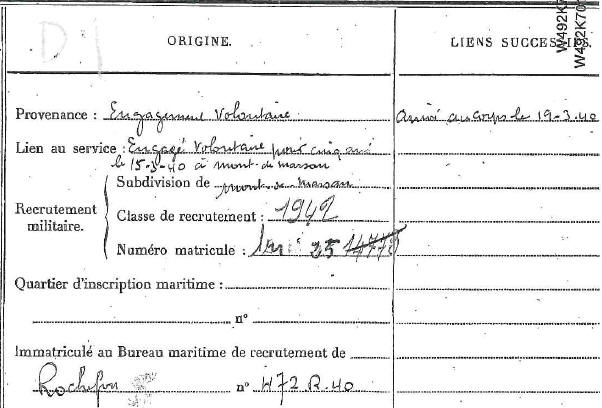 W492K7
W492K70
D
ORIGINE.
LIENS SUCCESSIFS.
Provenance : Engagement Volontaire
Arrivé au corps le 19-3.40
Lien au service : Engagé Volontaire pour cinq ans
le 15-3-40 à mont-de-marsan
Recrutement militaire.
Subdivision de mont-de-marsan
Classe de recrutement : 1942
Numéro matricule : 25
Quartier d'inscription maritime :
n°
Immatriculé au Bureau maritime de recrutement de
Rochefort n° 472.R.40